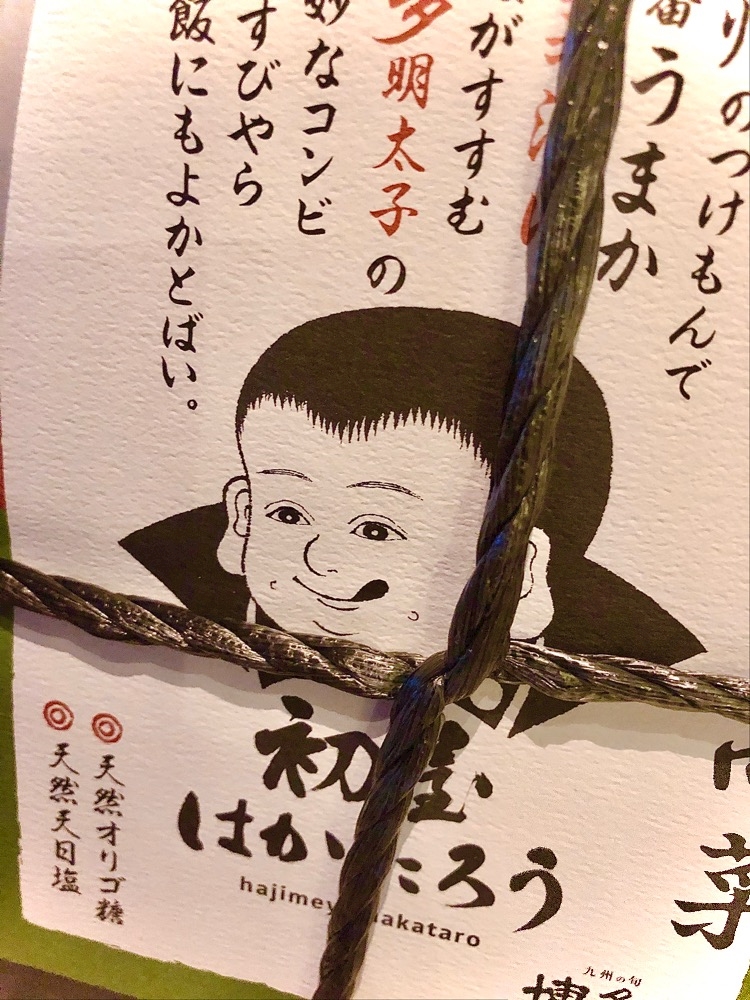 りのつけもんで
番うまか
がすすむ
多明太子の
妙なコンビ
すびやら
飯にもよかとばい。
初屋
はかたろう
hajimeya hakataro
天然オリゴ糖
天然天日塩
菜
九州の旬
博多